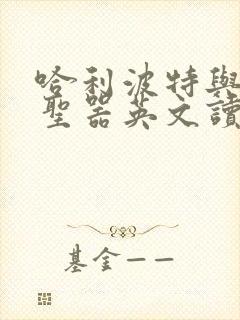 哈利波特與
聖器英文讀
基金——